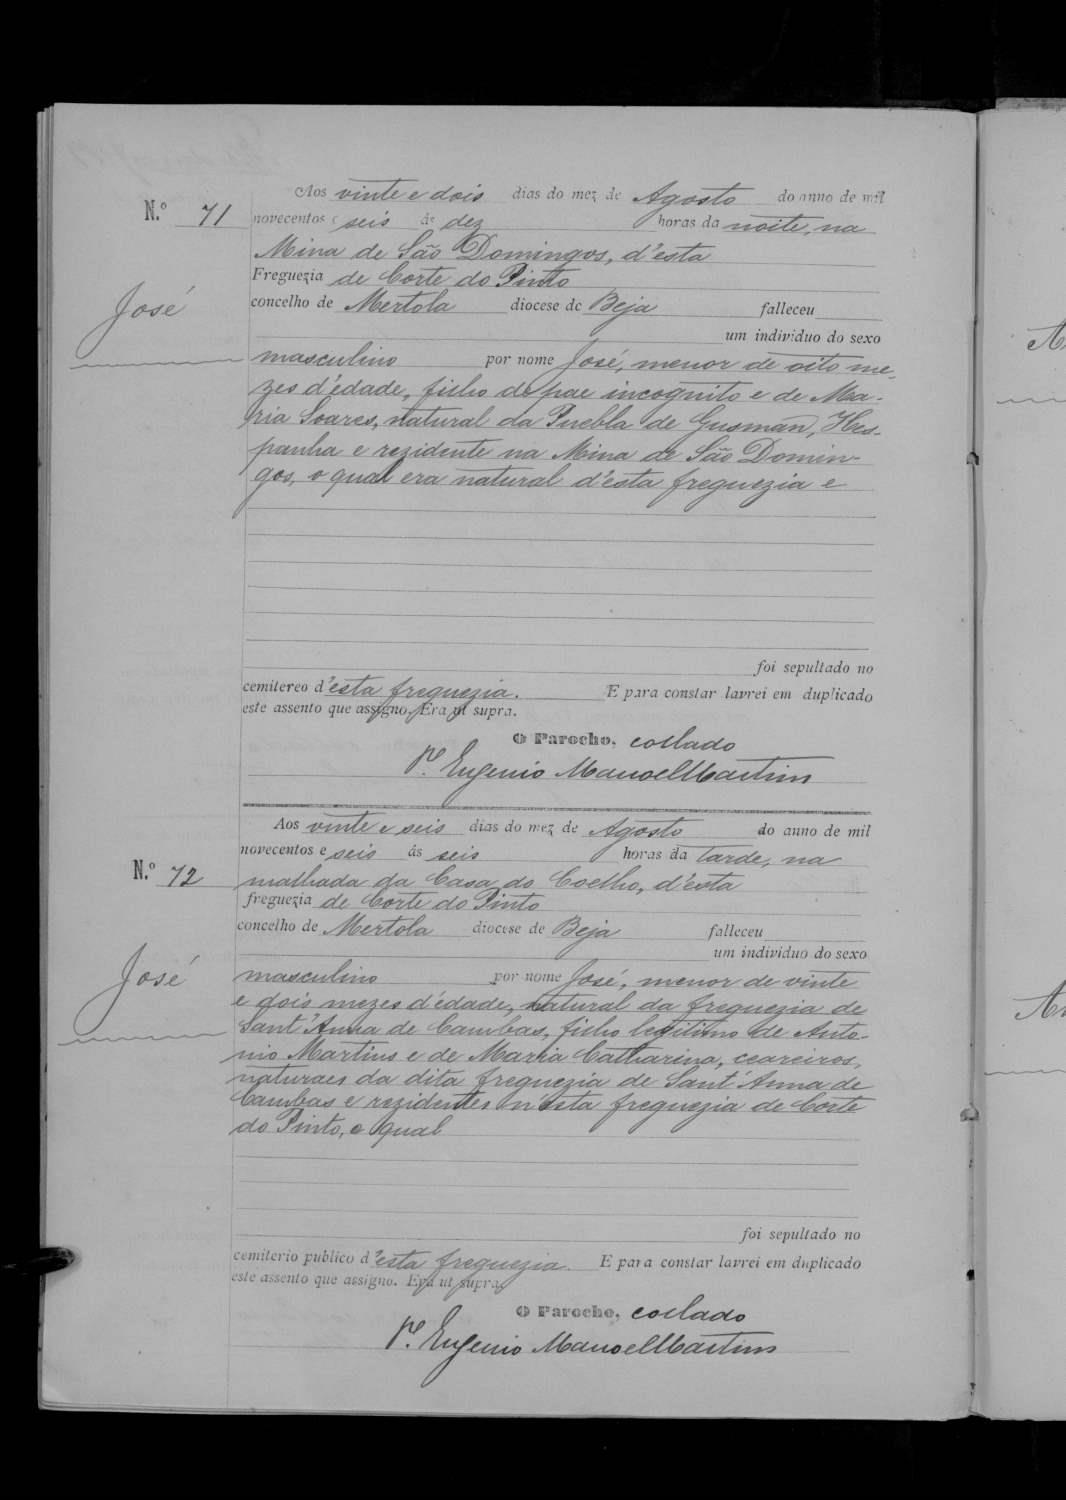 Aos vinte e dois dias do mez de Agosto do anno de mil
N.º 71 novecentos e seis ás dez horas da noite, na
Mina de São Domingos, d'esta
Freguezia de Corte do Pinto
José
concelho de Mertola diocese de Beja falleceu
um individuo do sexo
masculino por nome José, menor de oito me-
zes d'edade, filho de pae incognito e de Ma-
ria Soares, natural da Puebla de Gusman, Hes-
panha e rezidente na Mina de São Domin-
gos, o qual era natural d'esta freguezia e
foi sepultado no
cemitereo d'esta freguezia. E para constar lavrei em duplicado
este assento que assigno. Era ut supra.
O Parocho, collado
Pe. Eugenio Manoel Martins
Aos vinte e seis dias do mez de Agosto do anno de mil
novecentos e seis ás seis horas da tarde, na
N.º 72 malhada da Casa do Coelho, d'esta
freguezia de Corte do Pinto
concelho de Mertola diocese de Beja falleceu
um individuo do sexo
José
masculino por nome José, menor de vinte
e dois mezes d'édade, natural da freguezia de
Sant'Anna de Cambas, filho legitimo de Anto-
nio Martins e de Maria Catharina, ceareiros,
naturaes da dita freguezia de Sant'Anna de
Cambas e rezidentes n'esta freguezia de Corte
do Pinto, o qual
foi sepultado no
cemiterio publico d'esta freguezia. E para constar lavrei em duplicado
este assento que assigno. Era ut supra.
O Parocho, collado
Pe. Eugenio Manoel Martins